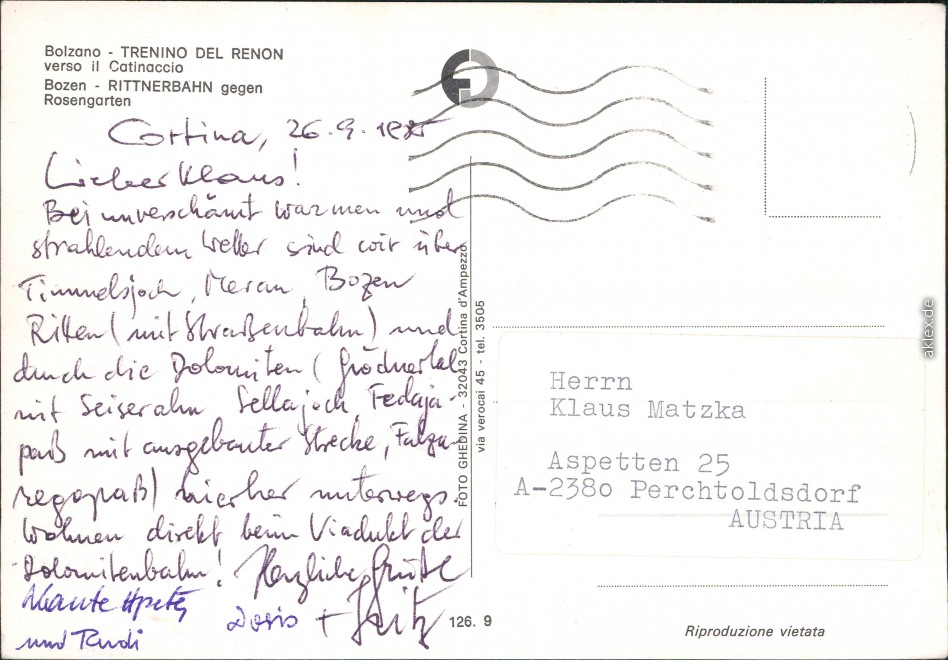 Bolzano - TRENINO DEL RENON
verso il Catinaccio
Bozen - RITTNERBAHN gegen
Rosengarten
Cortina, 26.9.1985
Lieber Klaus!
Bei unverschämt warmen und
strahlendem Wetter sind wir über
Timmelsjoch, Meran, Bozen
Ritten (mit Straßenbahn) und
durch die Dolomiten (Grödnertal
mit Seiseralm Sellajoch, Fedaja-
paß mit ausgebauter Strecke, Falza-
regopaß) hierher unterwegs.
Wohnen direkt beim Viadukt der
Dolomitenbahn! Herzliche Grüße
Doris + Fritz
und Rudi
126. 9
FOTO GHEDINA - 32043 Cortina d'Ampezzo
via verocai 45 - tel. 3505
Herrn
Klaus Matzka
Aspetten 25
A-2380 Perchtoldsdorf
AUSTRIA
Riproduzione vietata
aklex.de